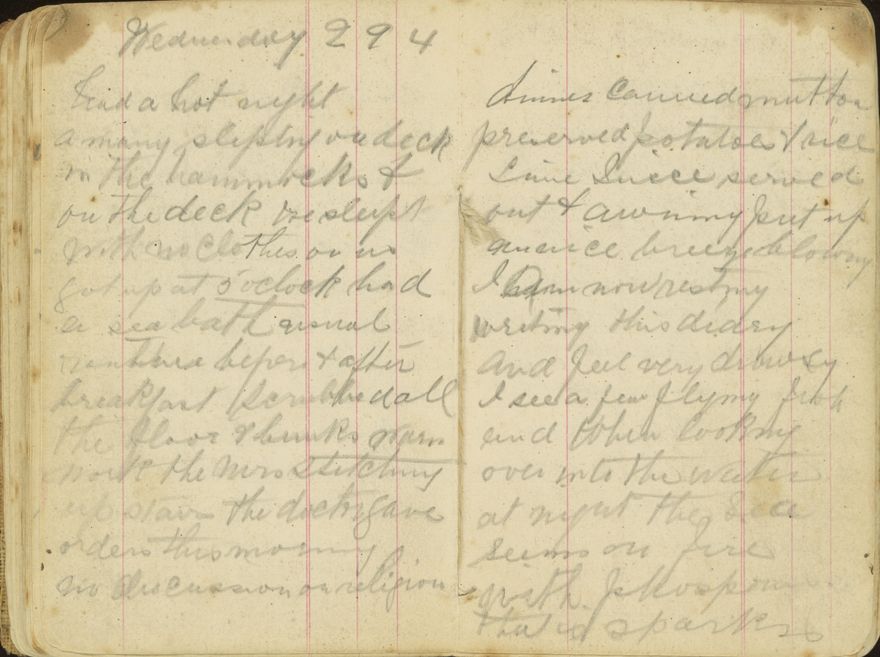 Wednesday 29 4
had a hot night
a many sleeping on deck
in the hammocks &
on the deck we slept
with no clothes on us
got up at 5 o'clock had
a sea bath usual
before & after
breakfast Scrubbed all
the floor & bunks warm
work the Mrs Stitching
up stairs the doctor gave
orders this morning
no discussion on religion
dinner Canned mutton
preserved potatoes & rice
Lime Juice served
out & awning put up
a nice breeze blowing
I am now resting
writing this diary
and feel very drowsy
I see a few flying fish
and When looking
over into the water
at night the Sea
seems on fire
with
that is sparks